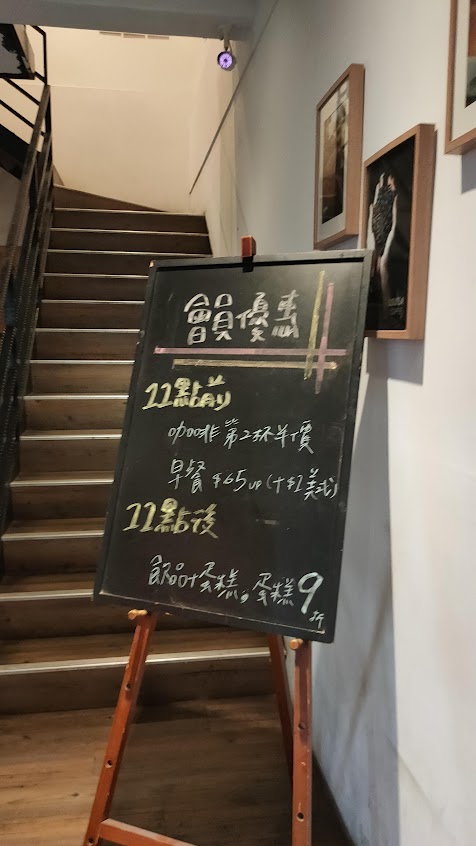 會員優惠
11點前
咖啡第2杯半價
早餐$65up(+$1美式)
11點後
飲品+蛋糕,蛋糕9折